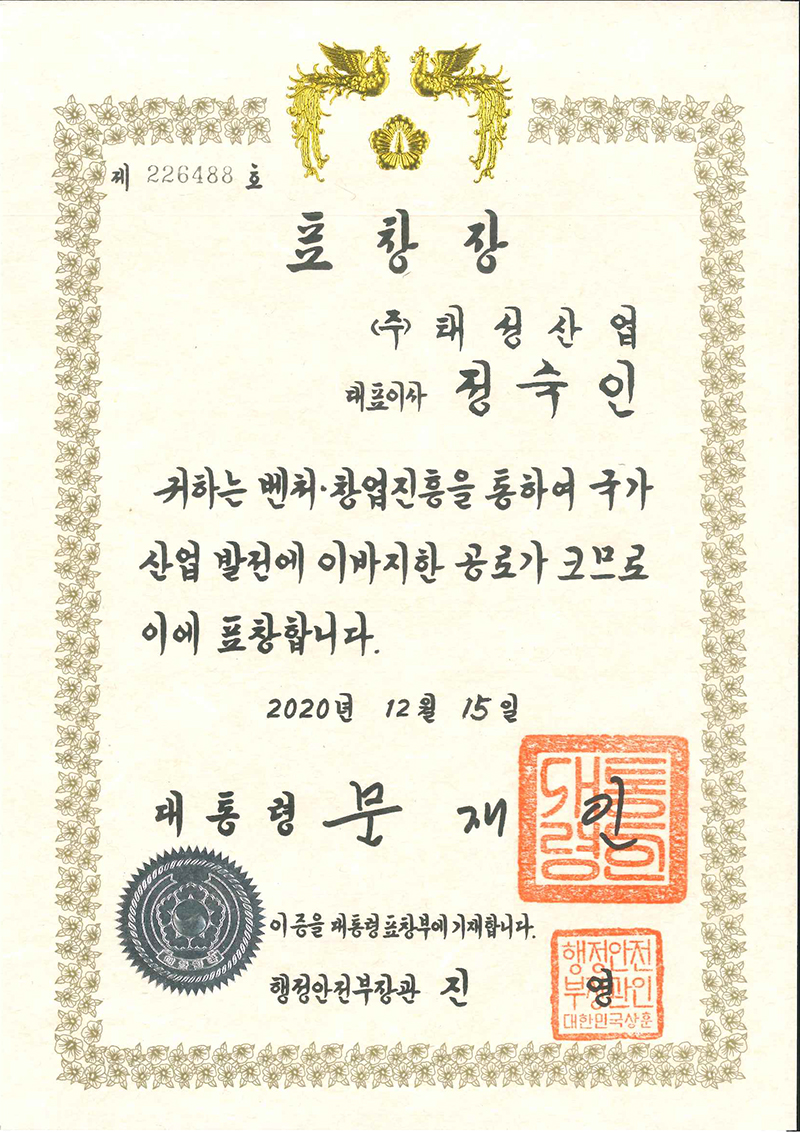 제 226488 호
표창장
(주) 태성산업
대표이사 정숙인
귀하는 벤처·창업진흥을 통하여 국가
산업 발전에 이바지한 공로가 크므로
이에 표창합니다.
2020년 12월 15일
대통령 문재인
대통령의인
이 증을 대통령표창부에 기재합니다.
행정안전부장관 진영
행정안전
부장관인
대한민국상훈